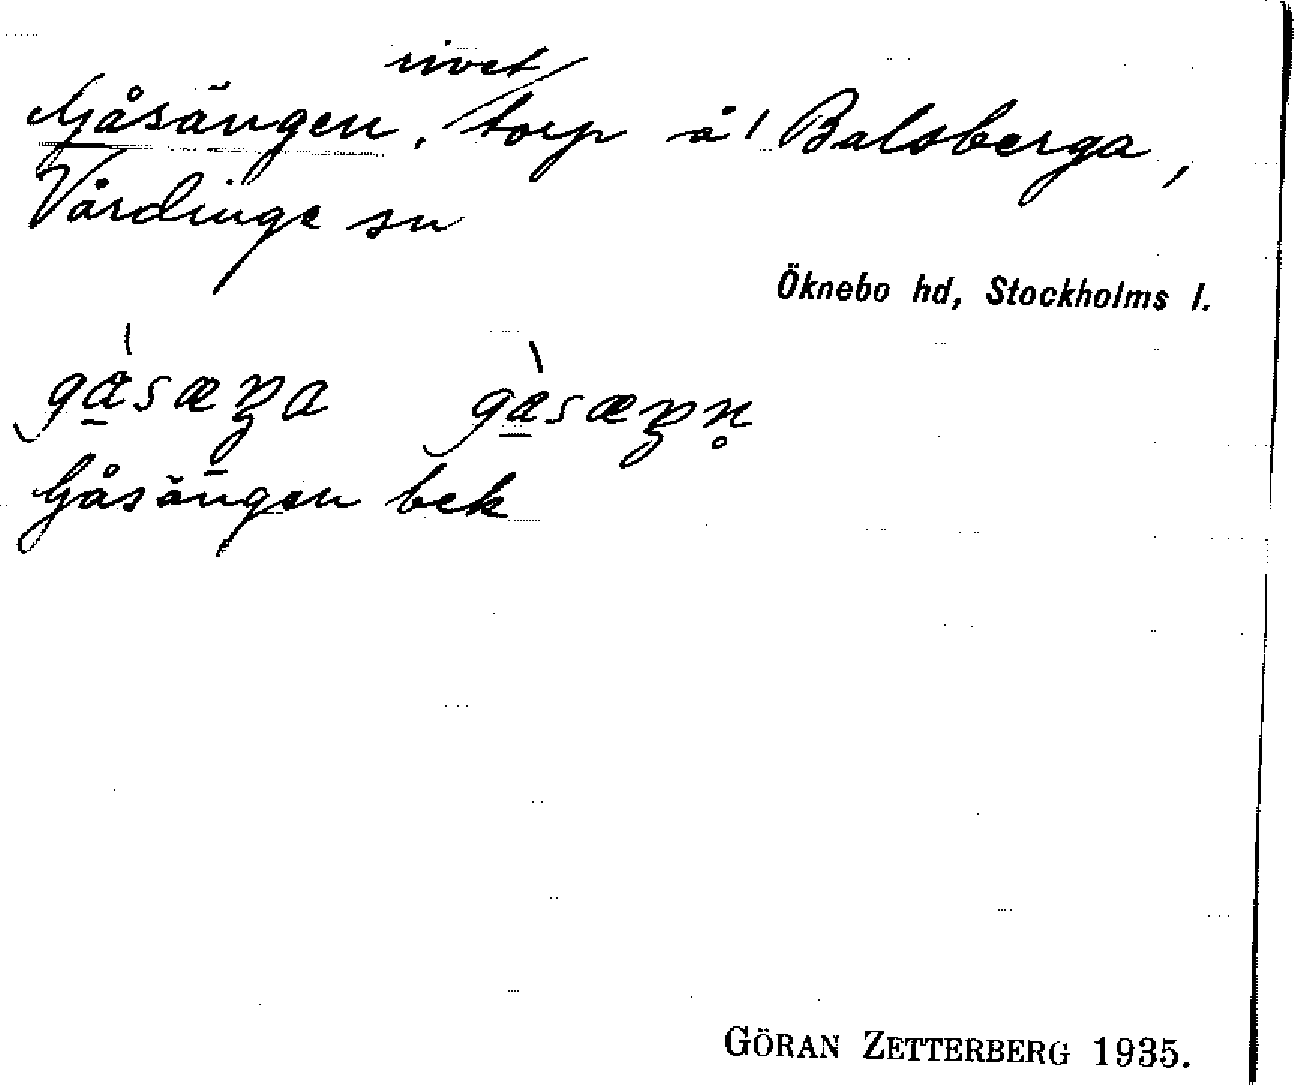 Gåsängen, rivet torp å Balsberga,
Vårdinge sn
Öknebo hd, Stockholms l.
Gåsängen bek
GÖRAN ZETTERBERG 1935.